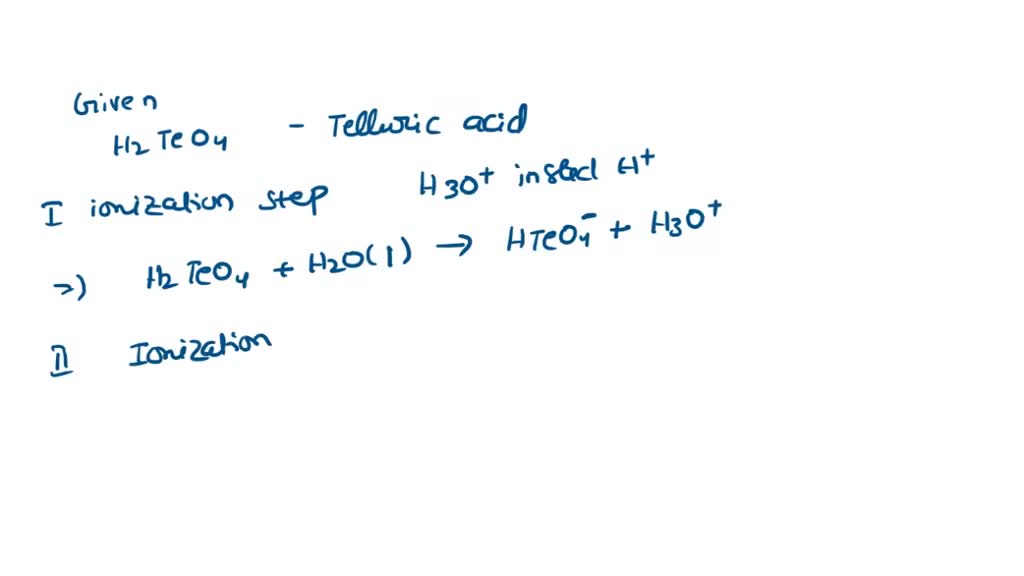 Given
H2 TeO4 - Telluric acid
I ionization step H3O+ insted H+
=>) H2 TeO4 + H2O(l) → HTeO4- + H3O+
II Ionization